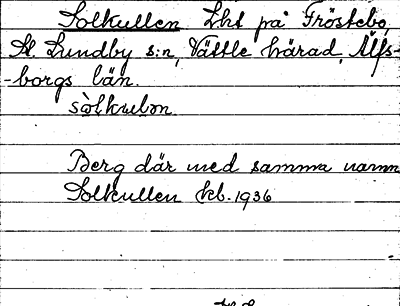 Solkullen Lht på Fröstebo,
St. Lundby s:n, Vättle härad, Älfs-
-borgs län.
sòlkulon
Berg där med samma namn
Solkullen kb. 1936